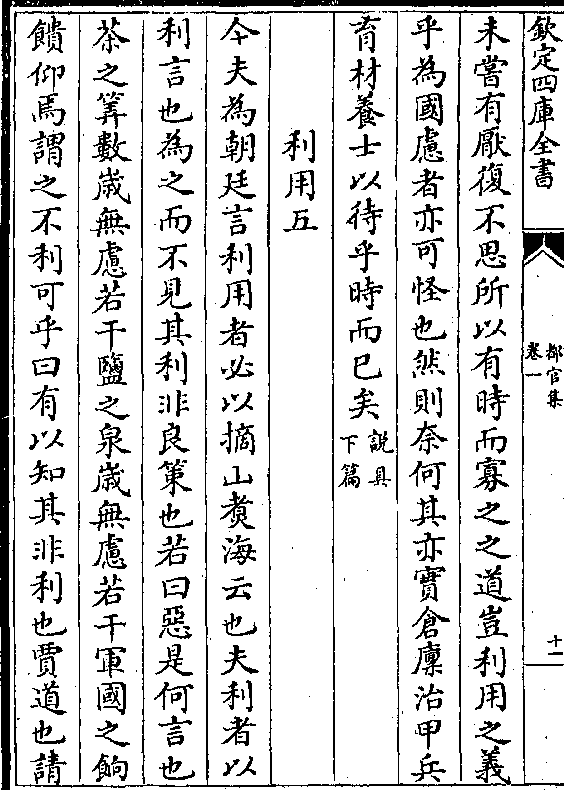 欽定四庫全書
都官集
卷一
十一
未嘗有厭復不思所以有時而寡之之道豈利用之義
乎為國慮者亦可怪也然則奈何其亦實倉廩治甲兵
育材養士以待乎時而已矣說具下篇
利用五
今夫為朝廷言利用者必以摘山煑海云也夫利者以
利言也為之而不見其利非良策也若曰惡是何言也
茶之筭數歲無慮若干鹽之泉歲無慮若干軍國之餉
饋仰焉謂之不利可乎曰有以知其非利也賈道也請